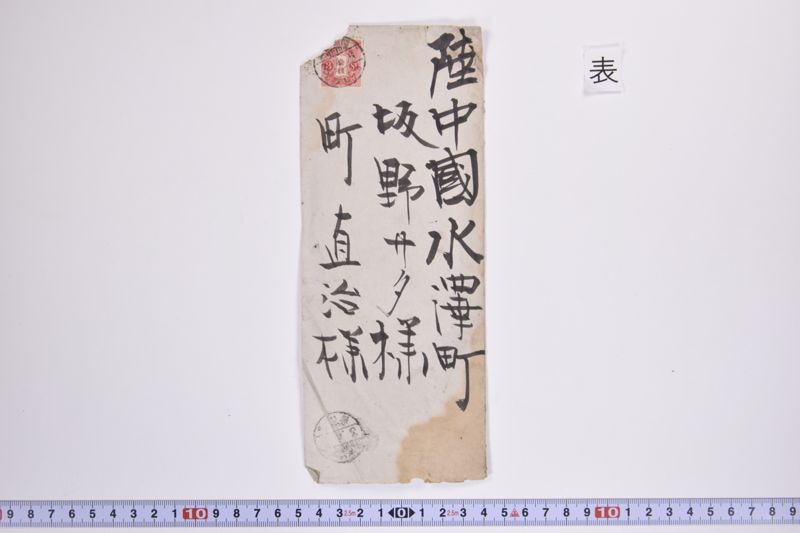 陸中國水澤町
坂野サタ様
町直治様
表
9 8 7 6 5 4 3 2 1 10 9 8 7 6 5 4 3 2.5m 2 1 0 1 2 2.5m 3 4 5 6 7 8 9 10 1 2 3 4 5 6 7 8 9